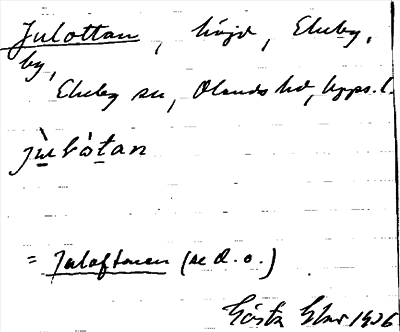 Julottan, höjd, Ekeby,
by,
Ekeby sn, Olands hd, Upps. l.
jùlòtan
= Julaftonen (se d. o.)
Gösta 1926